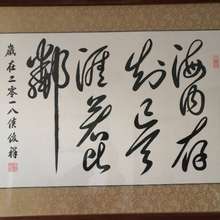 海内存
知己天
涯若比
鄰
歲在二零一八侯俊祥